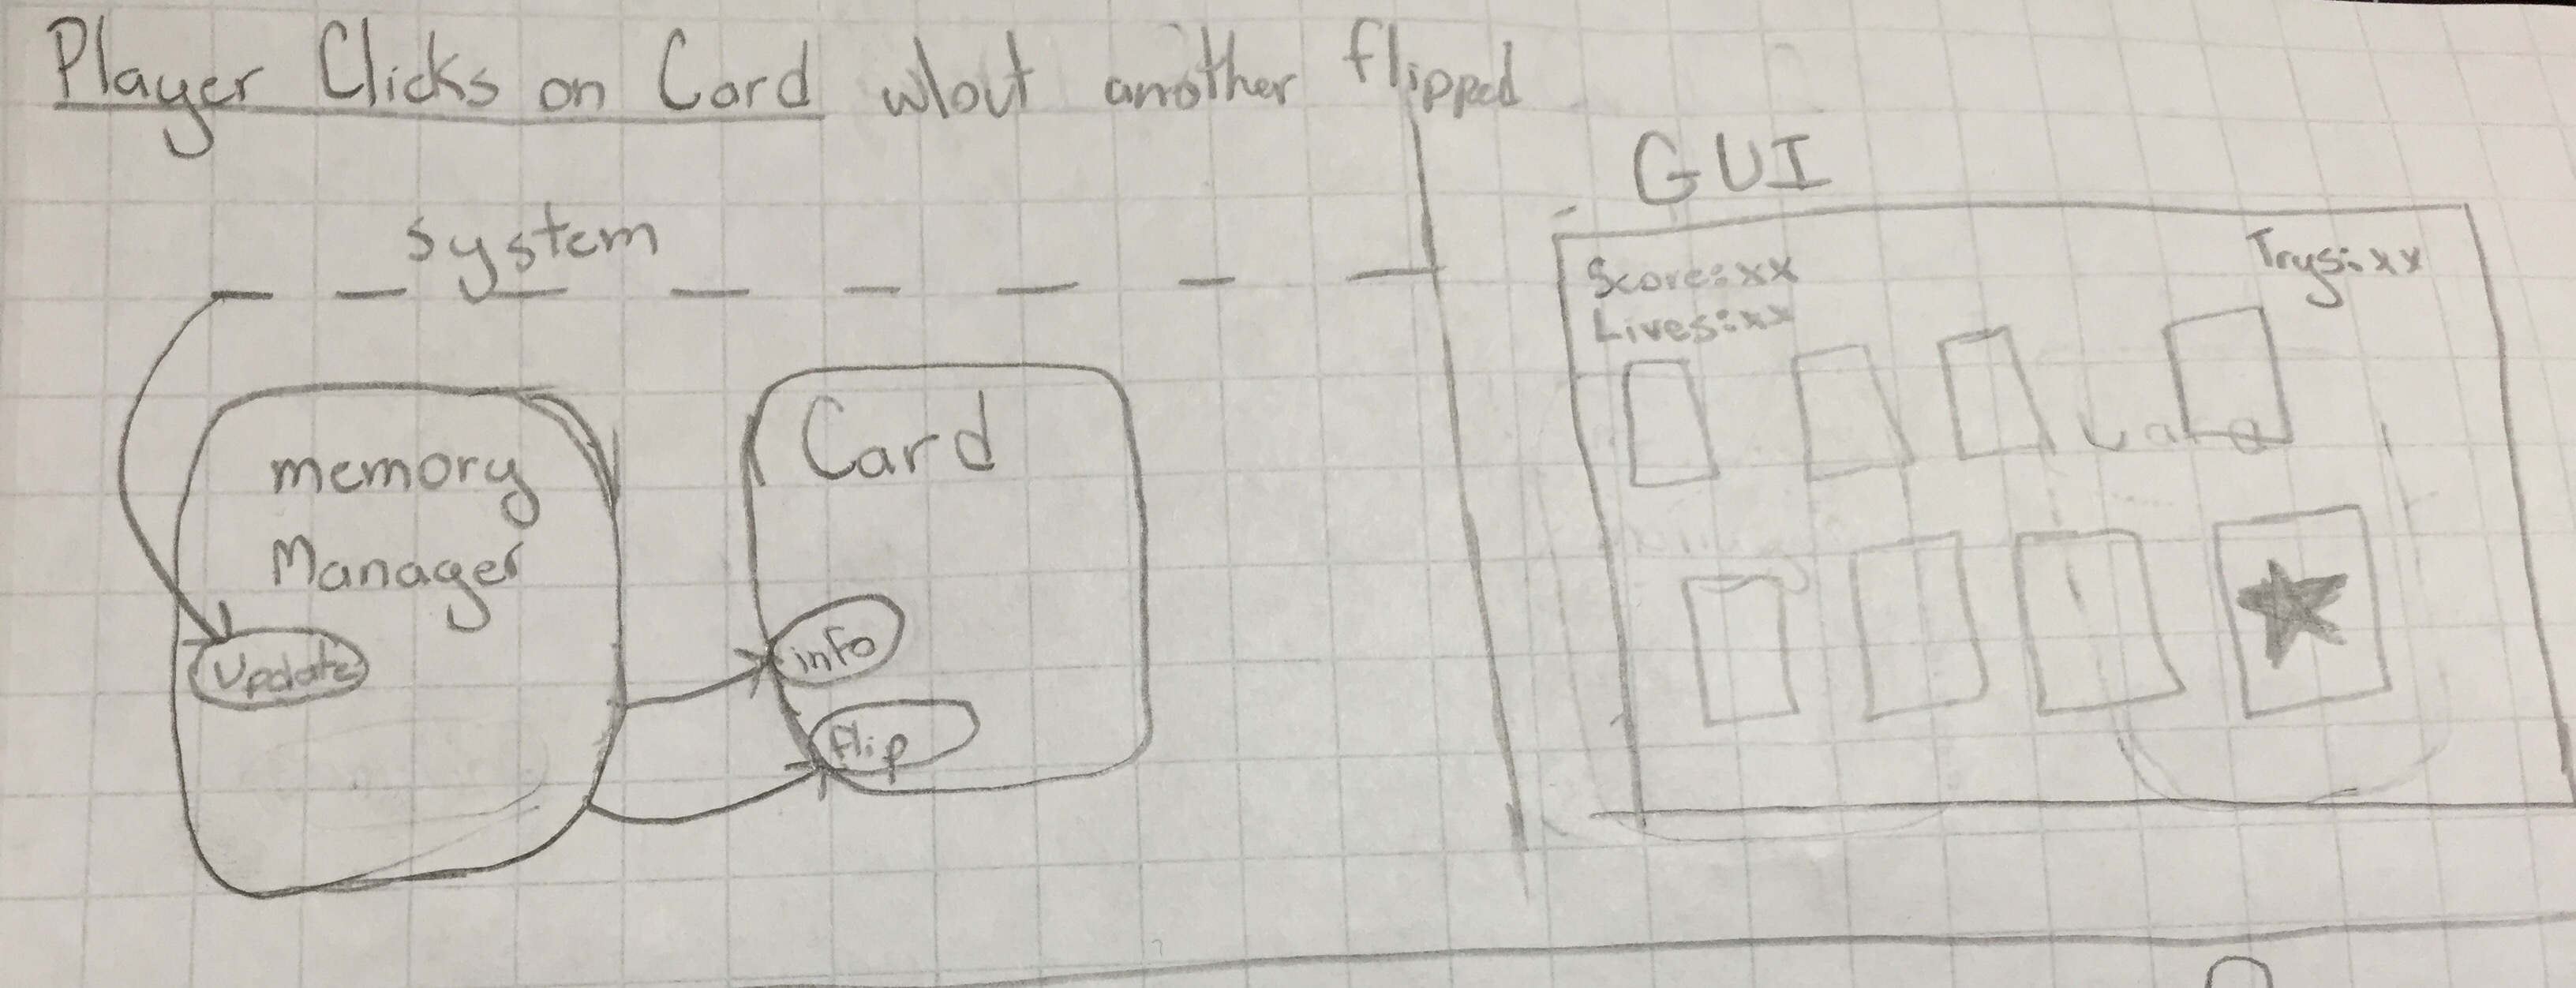 Player Clicks on Card w/out another flipped
system
memory
Manager
Update
Card
info
flip
GUI
Score:xx
Trys:xx
Lives:xx